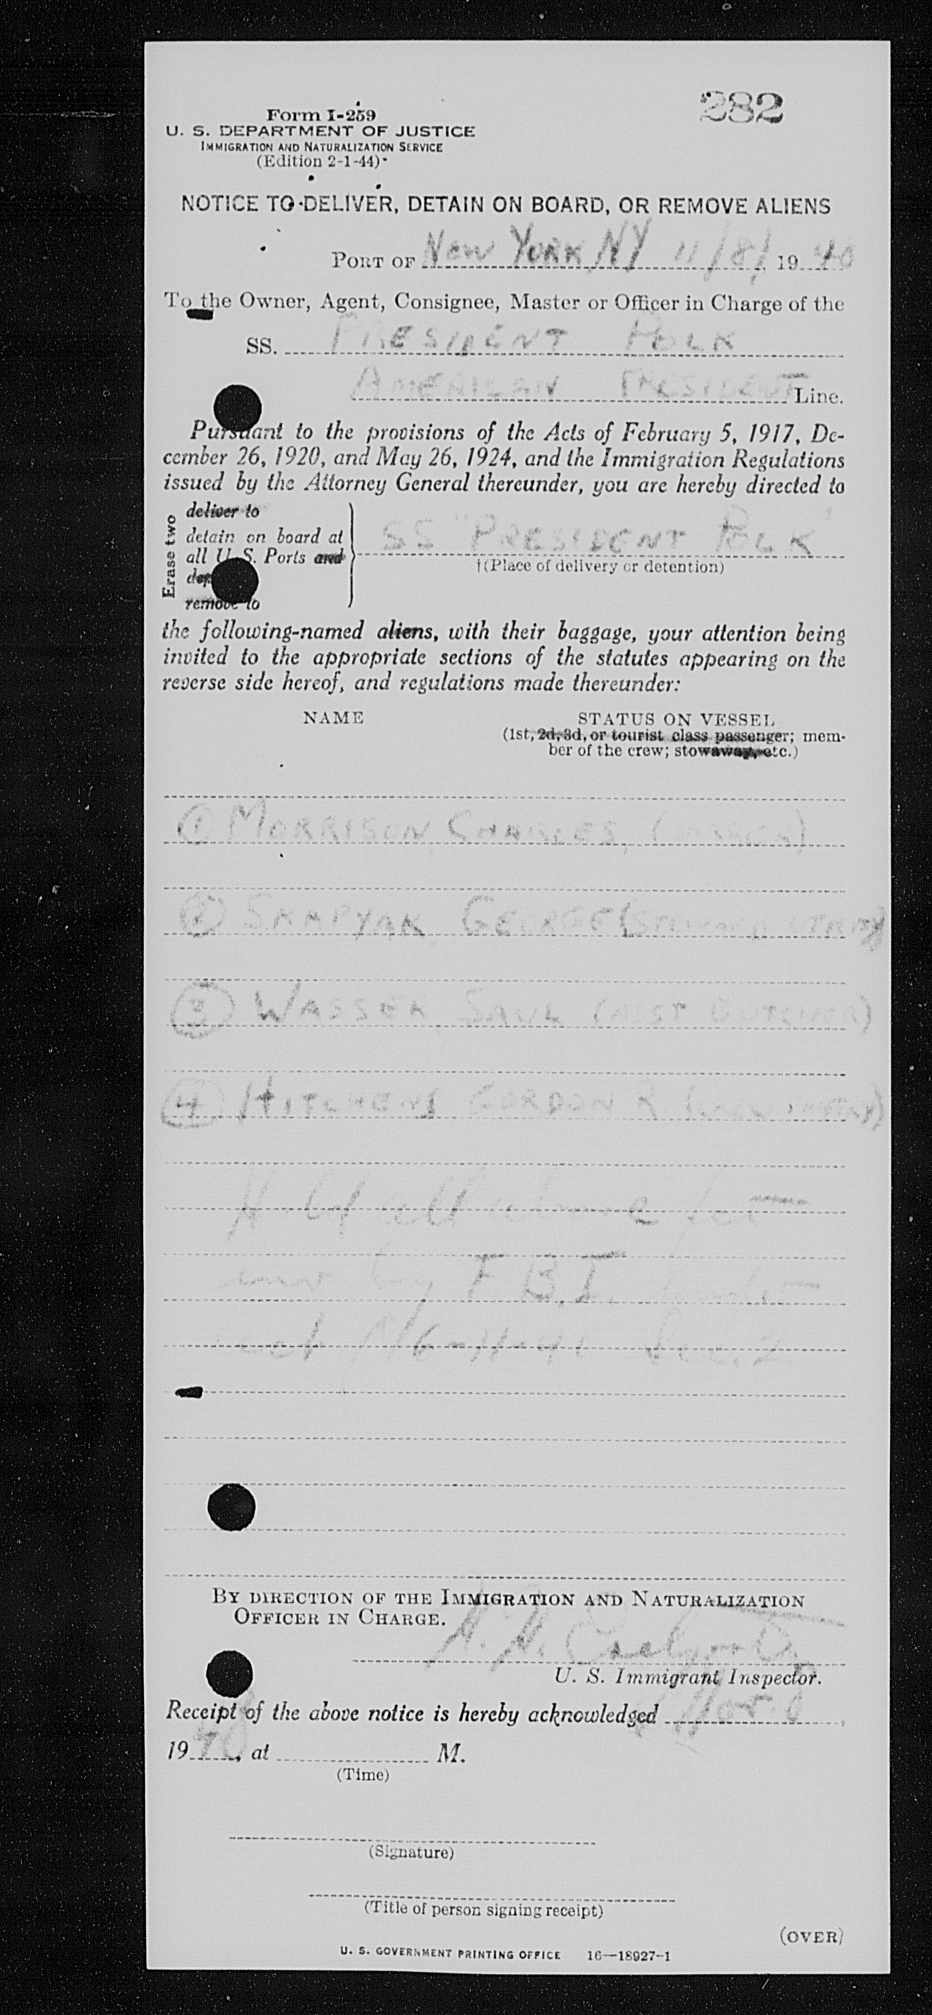 282
Form I-259
U. S. DEPARTMENT OF JUSTICE
IMMIGRATION AND NATURALIZATION SERVICE
(Edition 2-1-44)
NOTICE TO DELIVER, DETAIN ON BOARD, OR REMOVE ALIENS
PORT OF NEW YORK NY 11/8/ 19 46
To the Owner, Agent, Consignee, Master or Officer in Charge of the
SS. PRESIDENT POLK
AMERICAN PRESIDENT Line.
Pursuant to the provisions of the Acts of February 5, 1917, De-
cember 26, 1920, and May 26, 1924, and the Immigration Regulations
issued by the Attorney General thereunder, you are hereby directed to
Erase two
deliver to
detain on board at
all U. S. Ports and
remove to
SS "PRESIDENT POLK"
†(Place of delivery or detention)
the following-named aliens, with their baggage, your attention being
invited to the appropriate sections of the statutes appearing on the
reverse side hereof, and regulations made thereunder:
NAME STATUS ON VESSEL
(1st, 2d, 3d, or tourist class passenger; mem-
ber of the crew; stowaway, etc.)
① MORRISON, CHARLES,
② SKAPYAK, GEORGE
③ WASSER, SAUL (ASST BUTCHER)
④ HITCHENS GORDON R
Hold all above for
by F.B.I.
act 6-11-41 Sec. 2
BY DIRECTION OF THE IMMIGRATION AND NATURALIZATION
OFFICER IN CHARGE.
U. S. Immigrant Inspector.
Receipt of the above notice is hereby acknowledged
19 , at M.
(Time)
(Signature)
(Title of person signing receipt)
(OVER)
U. S. GOVERNMENT PRINTING OFFICE 16—18927-1